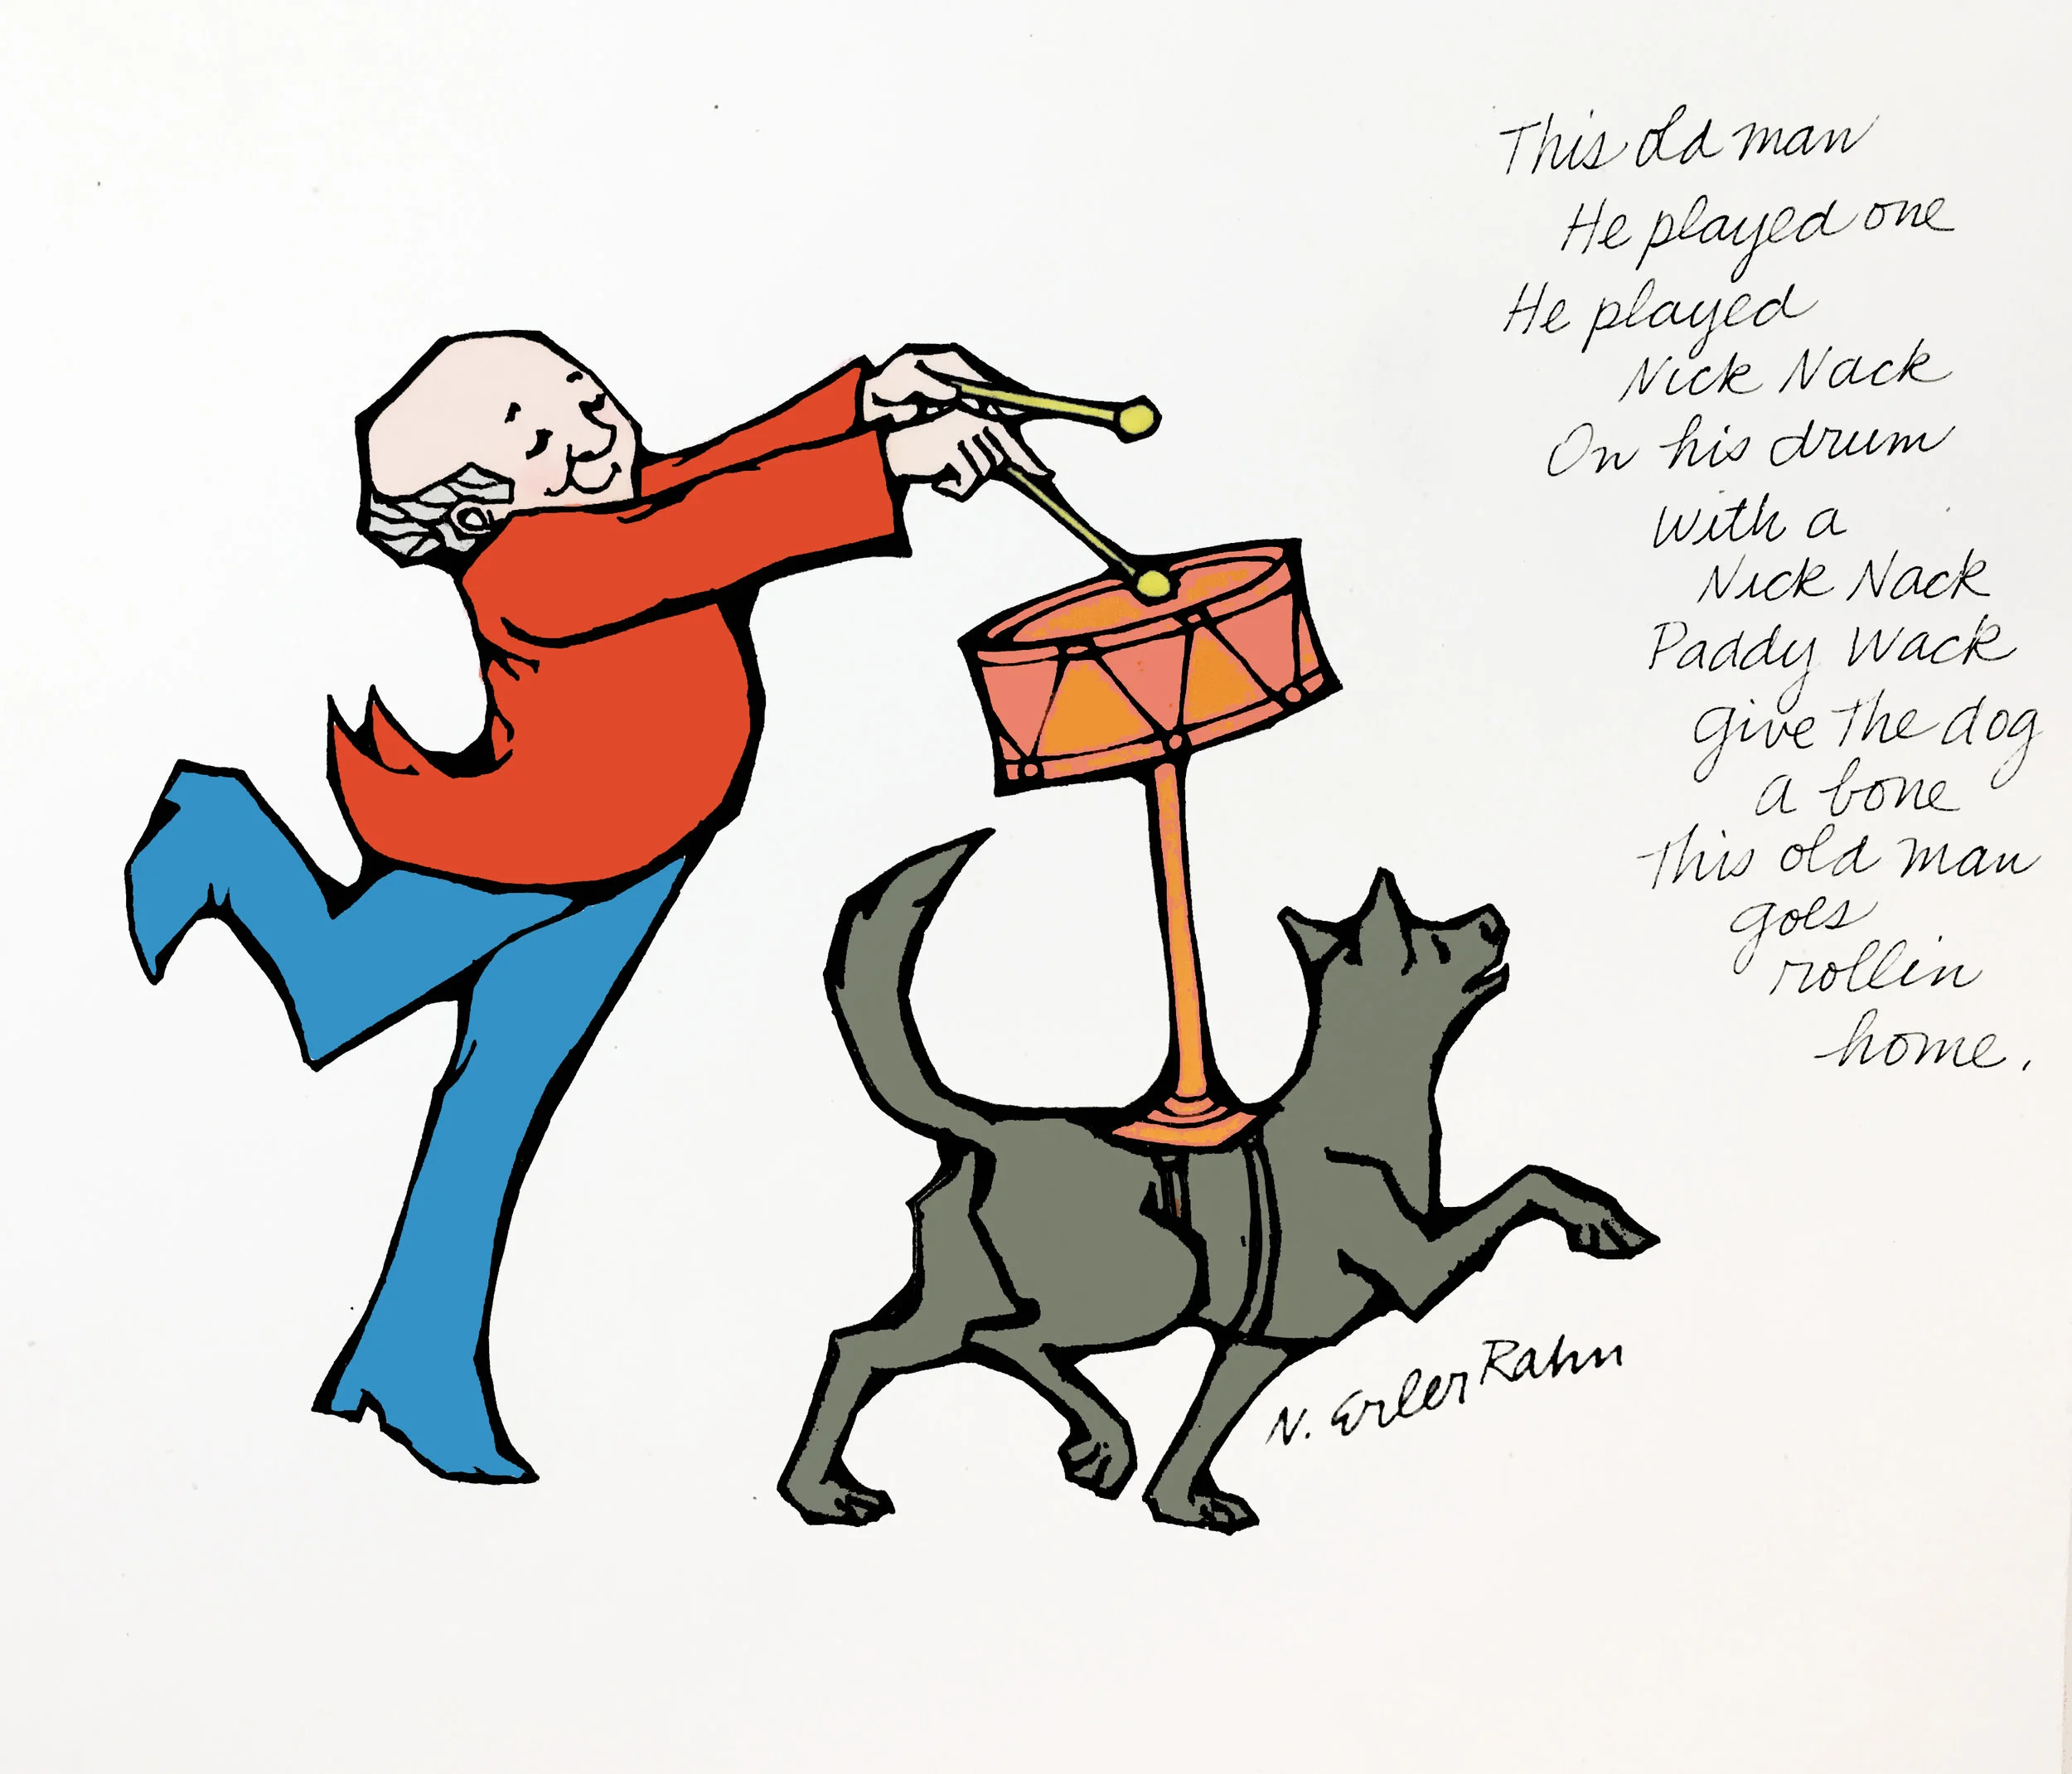 This old man
He played one
He played
Nick Nack
On his drum
with a
Nick Nack
Paddy Wack
give The dog
a bone
This old man
goes
rollin
home.
N. Erler Rahn